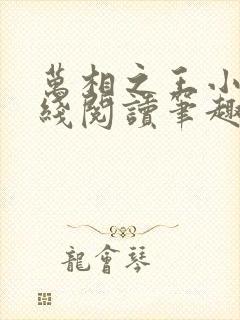 萬相之王小
綫閱讀筆趣
龍會琴